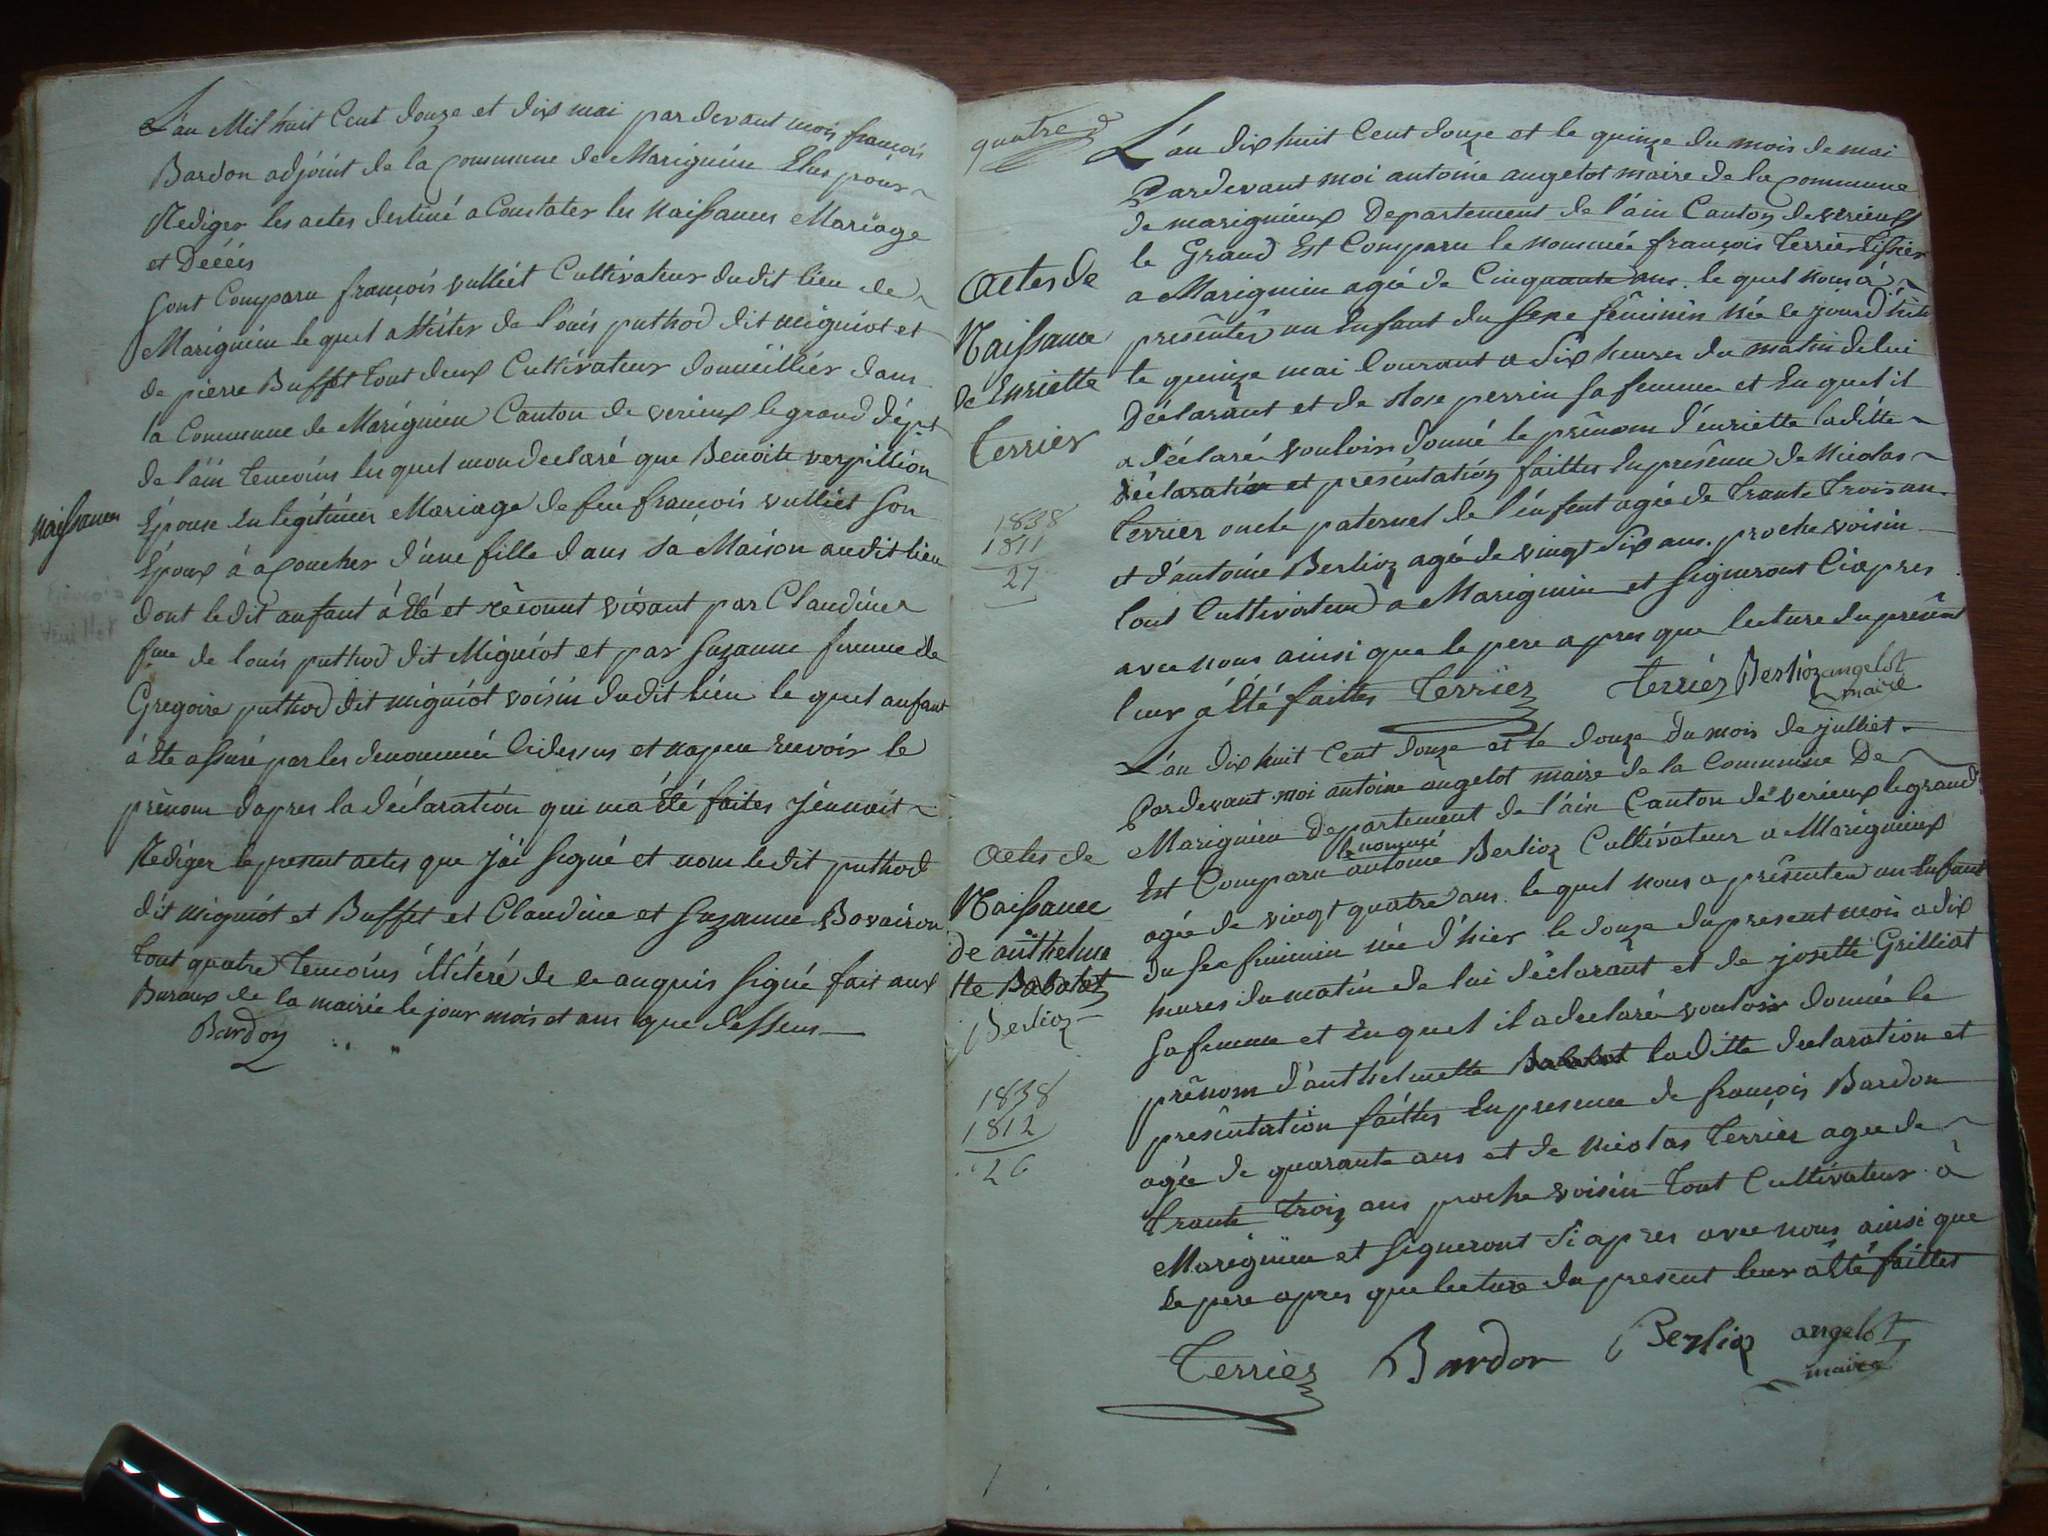 L'an Mil huit Cent douze et dix mai par devant moi françois
Bardon adjoint de la Commune de Marignieu Elus pour
Rediger les actes destiné a Constater les Naissances Mariage
et Décés
Sont Comparu françois vulliét Cultivateur dudit lieu de
Marignieu le quel assister de louis puthod dit migniot et
de pierre Buffet tout deux Cultivateur domicilliér dans
la Commune de Marignieu Canton de verieux le grand dépt
de l'ain temoins les quel mon declaré que Benoite verpillion
Naissances
Épouse en légitimes Mariage de feu françois vulliét son
Époux à acoucher d'une fille dans sa Maison audit lieu
dont ledit anfant à été et réconnt vivant par Claudine
fme de louis puthod dit Migniot et par Suzanne femme de
Gregoire puthod dit migniot voisin dudit lieu le quel anfant
à été assuré par les denommé Cidessus et na peu recevoir le
prénom dapres la déclaration qui ma été faites J'énnait
Rediger le present actes que J'ai signé et nom ledit puthod
dit migniot et Buffet et Claudine et Suzanne Bovairon
tout quatre temoins illitéré de ce anquis signé fait aux
Buraux de la mairie le jour mois et ans que dessus
Bardon
quatre
L'an dix huit Cent douze et le quinze du mois de mai
Pardevant moi antoine angelot maire de la Commune
de marignieux Departement de l'ain Canton de verieux
le Grand Est Comparu le nommée françois terrier tissier
a Marignieu agée de Cinquante ans. le quel nous à
presénter un Enfant du sexe féminin née le jourd'hui
le quinze mai Courant a six heures du matin de lui
Déclarant et de Rose perrin sa femme et En quel il
a déclaré vouloir donné le prénom d'énriette laditte
déclaration et presentation faittes En présence de Nicolas
terrier oncle paternel de l'énfent agée de trante trois an.
et d'antoine Berlioz agée de vingt six ans. proche voisin
tout Cultivateur a Marignieu et signeront Ciapres
avec nous ainsi que le pere apres que lecture du présent
leur à été faittes terrier terrier Berlioz angelot
maire
Actes de
Naissance
de Enriette
Terrier
1838
1811
27
L'an dix huit Cent douze et le douze du mois de julliet
Par devant moi antoine angelot maire de la Commune De
Marignieu Departement de l'ain Canton de verieux le grand
Est Comparu le nommé antoine Berlioz Cultivateur a Marignieux
agée de vingt quatre ans. le quel nous a présenter un Enfant
du sex feminin née d'hier le douze du present mois a dix
heures du matin de lui déclarant et de josette Grilliat
sa femme et En quel il a declaré vouloir donnée le
prénom d'anthelmette Babolat laditte declaration et
présentation faittes En presence de françois Bardon
agée de quarante ans et de Nicolas terrier agee de
trante trois ans proche voisin tout Cultivateur à
Marignieu et signeront Ciapres avec nous ainsi que
le pere apres que lecture du present leur à été faittes
Terrier Bardon Berlioz angelot
maire
Actes de
Naissance
de anthelme
tte Babolat
Berlioz
1838
1812
26